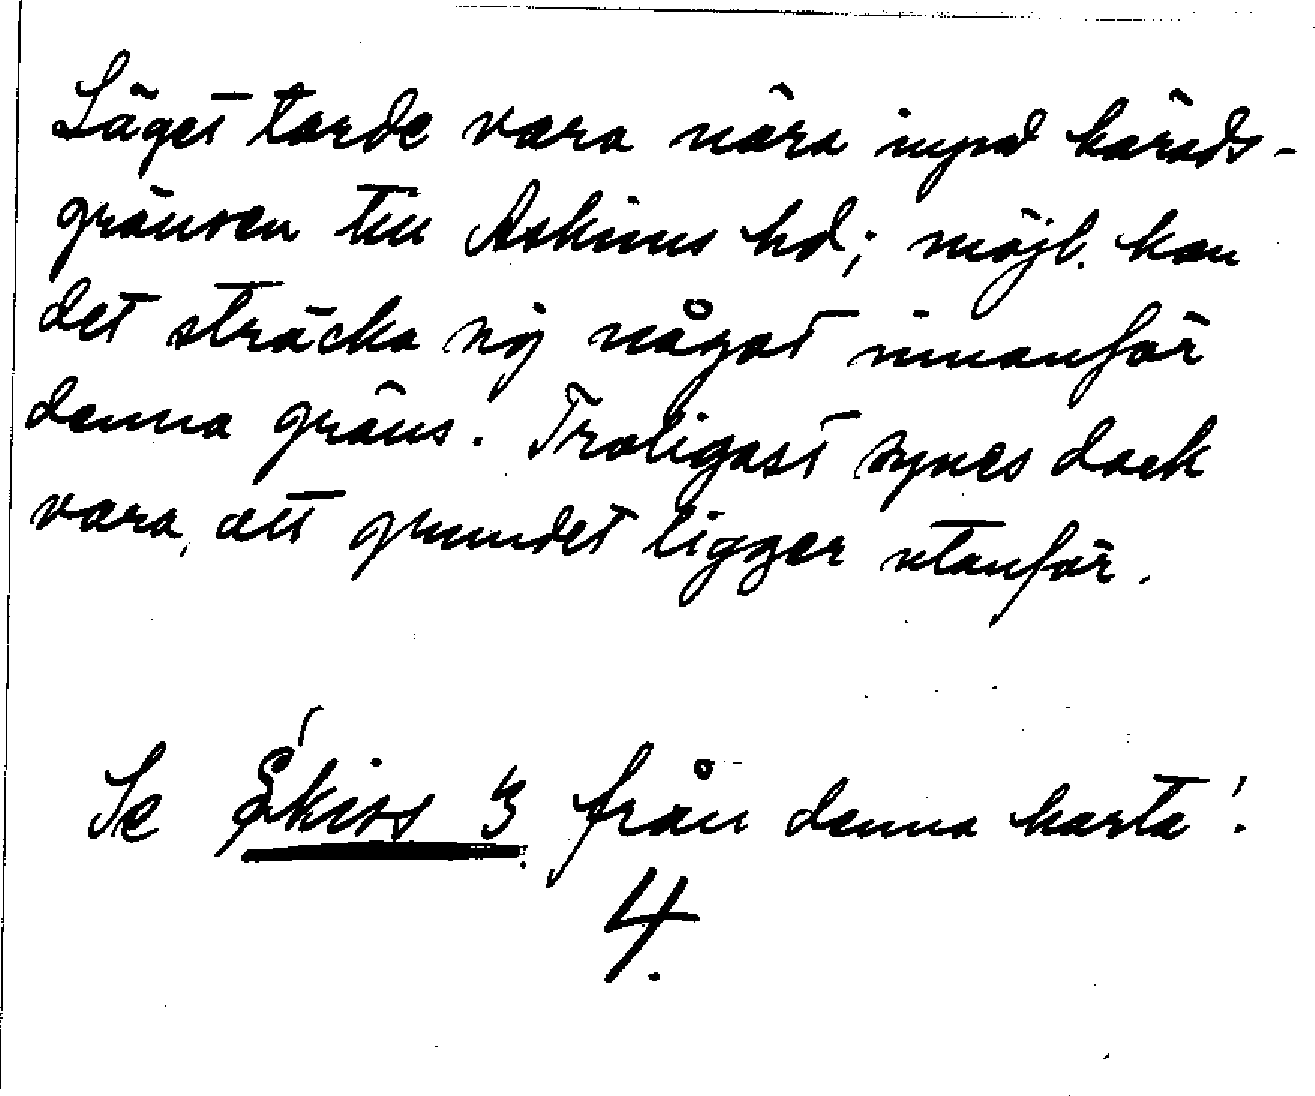 Läget torde vara nära inpå härads-
gränsen till Askims hd; möjl. kan
det sträcka sig något innanför
denna gräns. Troligast synes dock
vara, att grundet ligger utanför.
Se Skiss 3 från denna karta!
4.